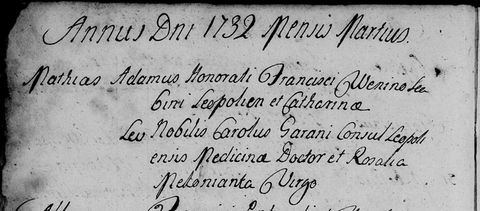 Annus Dni 1732 Mensis Martius.
Mathias Adamus Honorati Francisci Wenino Leo
bini Leopolien et Catharinæ
Lev Nobilis Carolus Garani Consul Leopoli
ensis Medicinæ Doctor et Rosalia
Melonianta Virgo